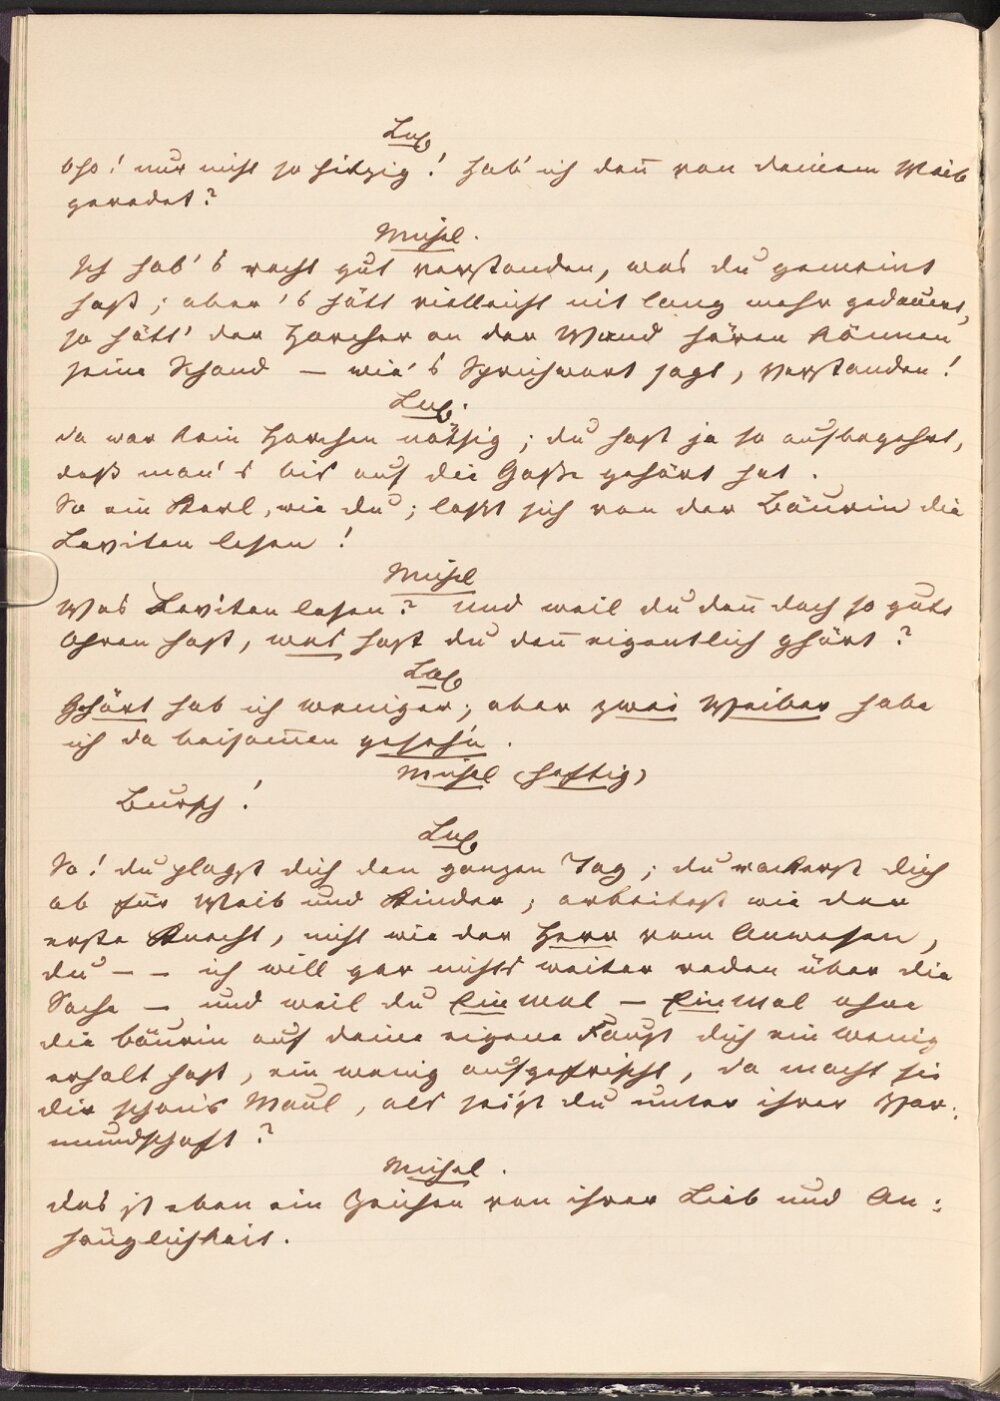 Lux
oho! nur nicht so hitzig! Hab' ich deñ von deinem Weib
geredet?
Michel.
Ich hab's recht gut verstanden, was du gemeint
hast; aber 's hätt vielleicht nit lang mehr gedauert,
so hätt' der Horcher an der Wand hören können
seine Schand — wie's Sprichwort sagt, verstanden!
Lux.
da war kein Horchen nöthig; du hast ja so aufbegehrt,
daß man's bis auf die Gasse gehört hat.
So ein Kerl, wie du; lasst sich von der Bäurin die
Leviten lesen!
Michel
Was Leviten lesen? und weil du deñ doch so gute
Ohren hast, was hast du deñ eigentlich ghört?
Lux
Gehört hab ich weniger; aber zwei Weiber habe
ich da beisam̄en geseh'n.
Michel (heftig)
Bursch!
Lux
So! du plagst dich den ganzen Tag; du rackerst dich
ab für Weib und Kinder; arbeitest wie der
erste Knecht, nicht wie der Herr vom Anwesen,
du — — ich will gar nichts weiter reden über die
Sache — und weil du Einmal — Einmal ohne
die bäurin auf deine eigene Faust dich ein wenig
erholt hast, ein wenig aufgefrischt, da macht sie
dir schon's Maul, als sei'st du unter ihrer Vor:
mundschaft?
Michel.
das ist eben ein Zeichen von ihrer Lieb und An:
hänglichkeit.